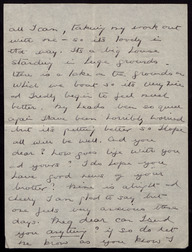 all I can, taking my work out
with one - so its lovely in
the way. Its a big house
standing in huge grounds.
there is a lake in the grounds on
which we boat so its very nice
I really begin to feel much
better. My heads been so queer
again & I've been horribly bored
but its getting better so I hope
all will be well. And you
dear? how goes life with you
and yours? I do hope you
have good news of your
brother? Mine is alright and
cheery, I am glad to say but
one feels very anxious these
days. My dear can I send
you anything? if so do let
me know as you know I